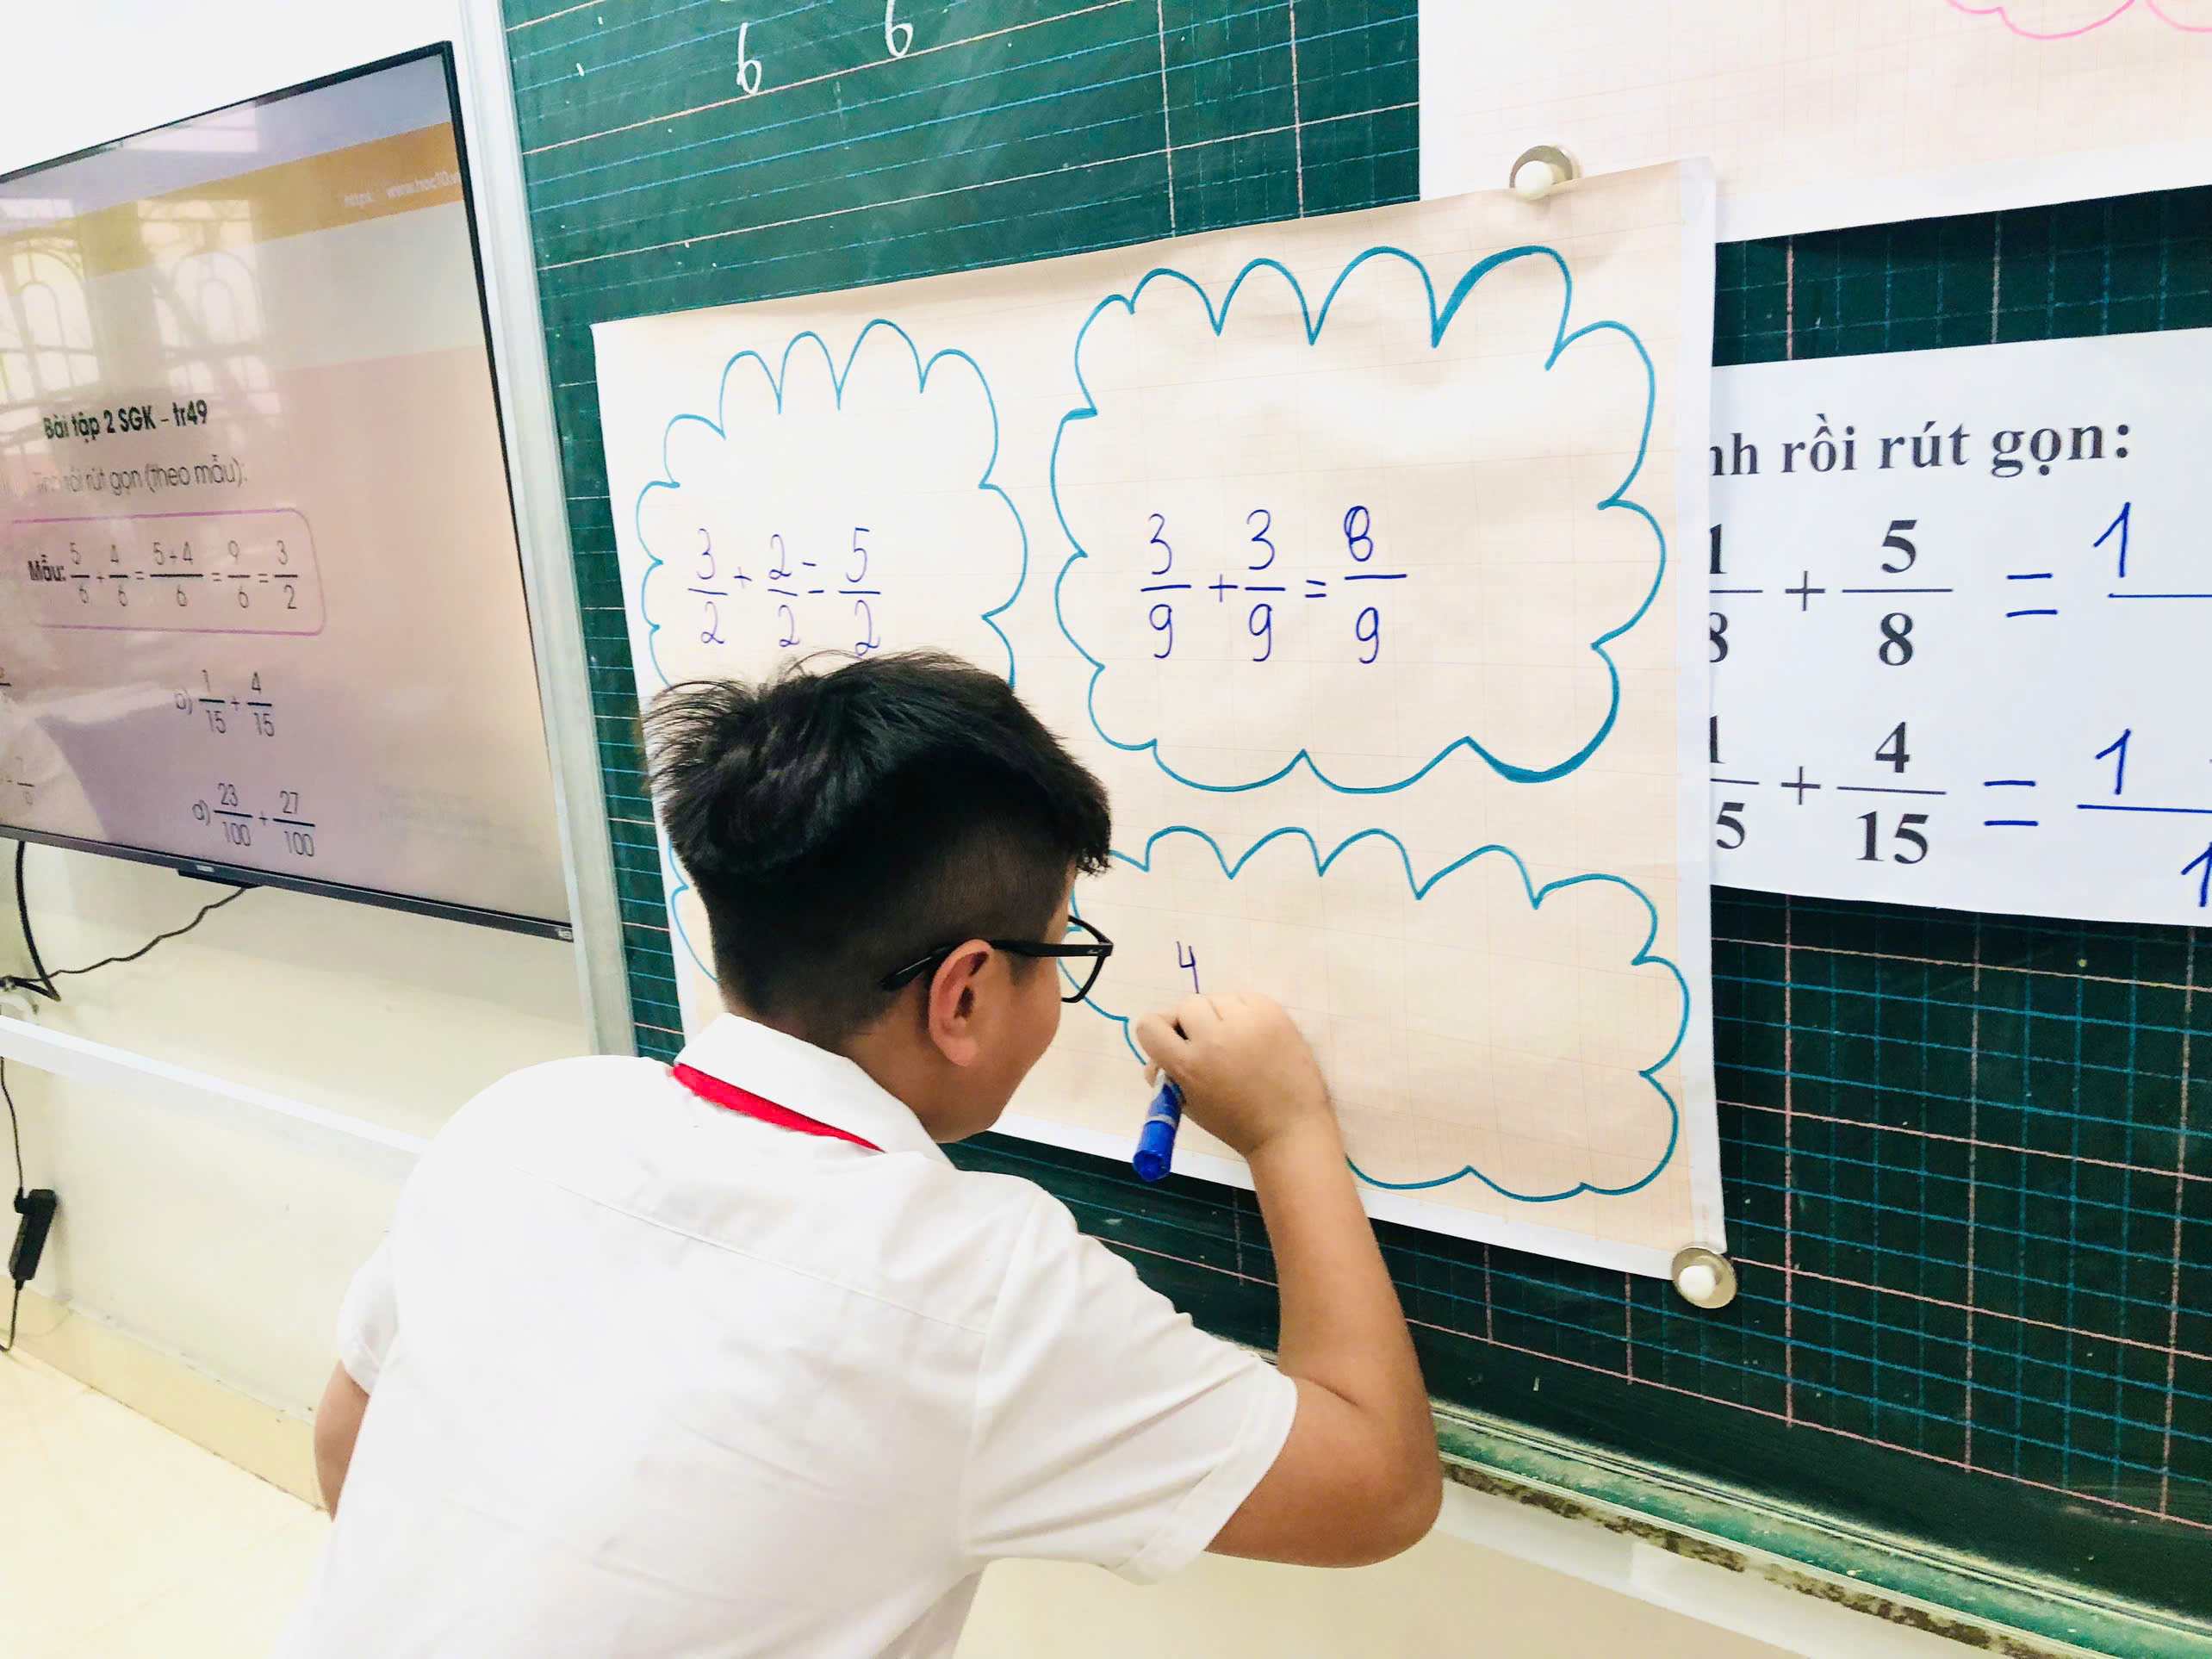 6 6
www.hoc10.v
Bài tập 2 SGK - tr49
Tính rồi rút gọn (theo mẫu):
Mẫu: 5/6 + 4/6 = 5+4/6 = 9/6 = 3/2
b) 1/15 + 4/15
d) 23/100 + 27/100
3/2 + 2/2 = 5/2
3/9 + 3/9 = 8/9
4
nh rồi rút gọn:
1/8 + 5/8 = 1
1/5 + 4/15 = 1
1